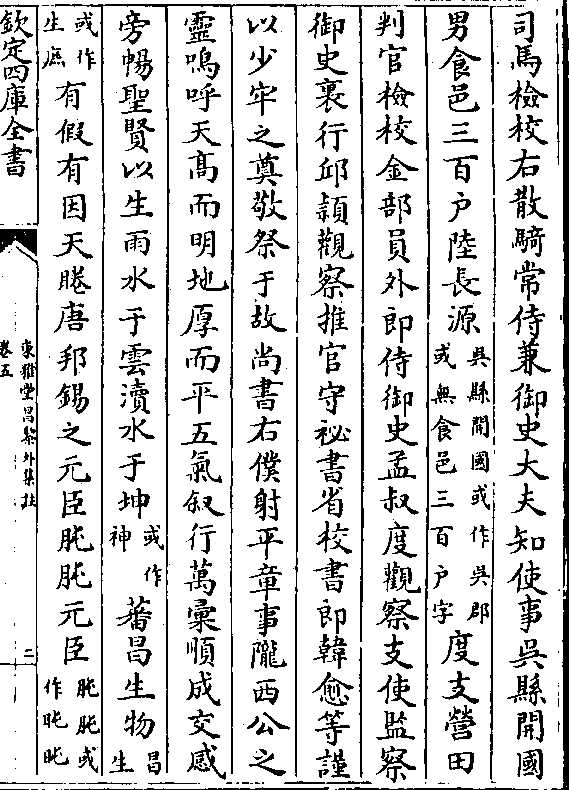 司馬檢校右散騎常侍兼御史大夫知使事吳縣開國
男食邑三百戶陸長源吳縣開國或作吳郡或無食邑三百戶字度支營田
判官檢校金部員外郎侍御史孟叔度觀察支使監察
御史裏行邱頴觀察推官守祕書省校書郎韓愈等謹
以少牢之奠敬祭于故尚書右僕射平章事隴西公之
靈嗚呼天高而明地厚而平五氣叙行萬彙順成交感
旁暢聖賢以生雨水于雲瀆水于坤或作神蕃昌生物昌生
或作生庶有假有因天睠唐邦錫之元臣肫肫元臣肫肫或作盹盹
欽定四庫全書
東雅堂昌黎外集註
卷五
二